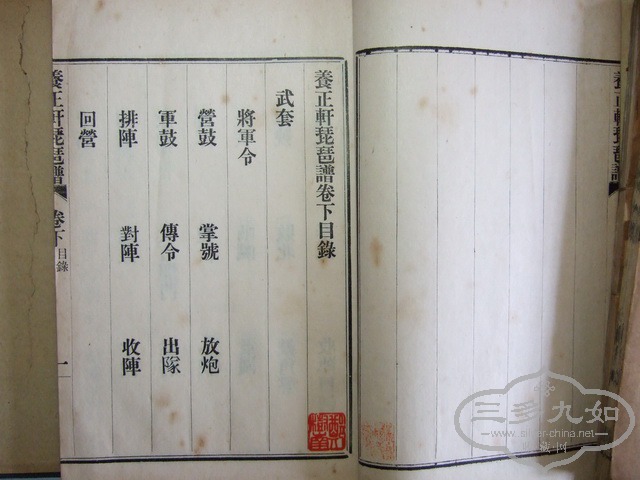 養正軒琵琶譜卷下目錄
武套
將軍令
營鼓 掌號 放炮
軍鼓 傳令 出隊
排陣 對陣 收陣
回營
養正軒琵琶譜 卷下 目錄 一
養正軒琵琶譜
三多九如
www.silver-china.net